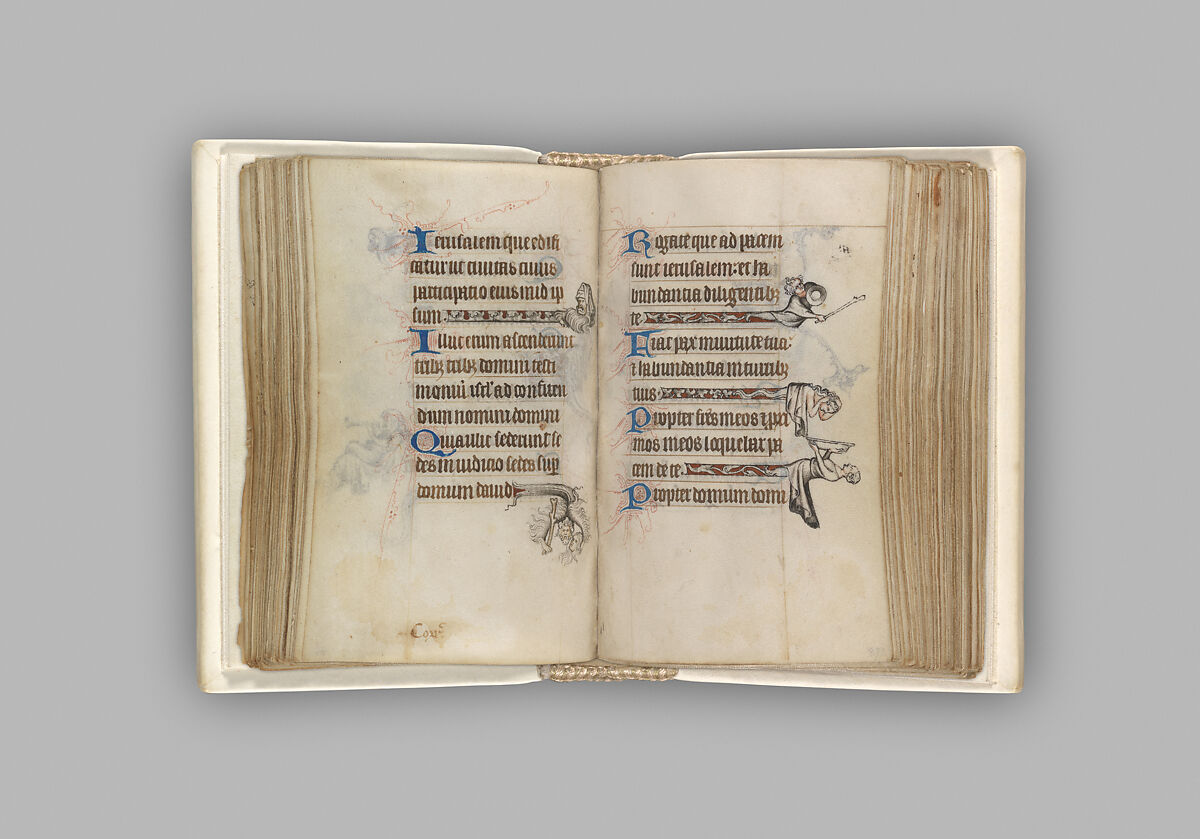 Ierusalem que edifi
catur ut civitas cuius
participatio eius in id ip
sum.
Illuc enim ascenderunt
trib⁊ trib⁊ domini testi
moniū isrl' ad confiten
dum nomini domini
Quia illic sederunt se
des in iudicio sedes sup̄
domum david
Rogate que ad pacem
sunt ierusalem: et ha
bundantia diligentib⁊
te
Fiat pax in virtute tua:
⁊ habundantia in turrib⁊
tuis.
Propter frēs meos ⁊ p̄xi
mos meos loquebar pa
cem de te.
Propter domum domi